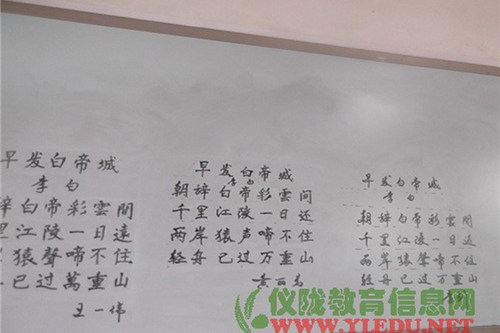 早发白帝城
李白
辞白帝彩雲间
里江陵一日还
猿聲啼不住
已过萬重山
王一伟
早发白帝城
李白
朝辞白帝彩雲间
千里江陵一日还
两岸猿声啼不住
轻舟已过万重山
黄丽
早发白帝城
李白
朝辞白帝彩雲间
千里江陵一日还
两岸猿聲啼不住
轻舟已过万重山
仪陇教育信息网
WWW.YLEDU.NET